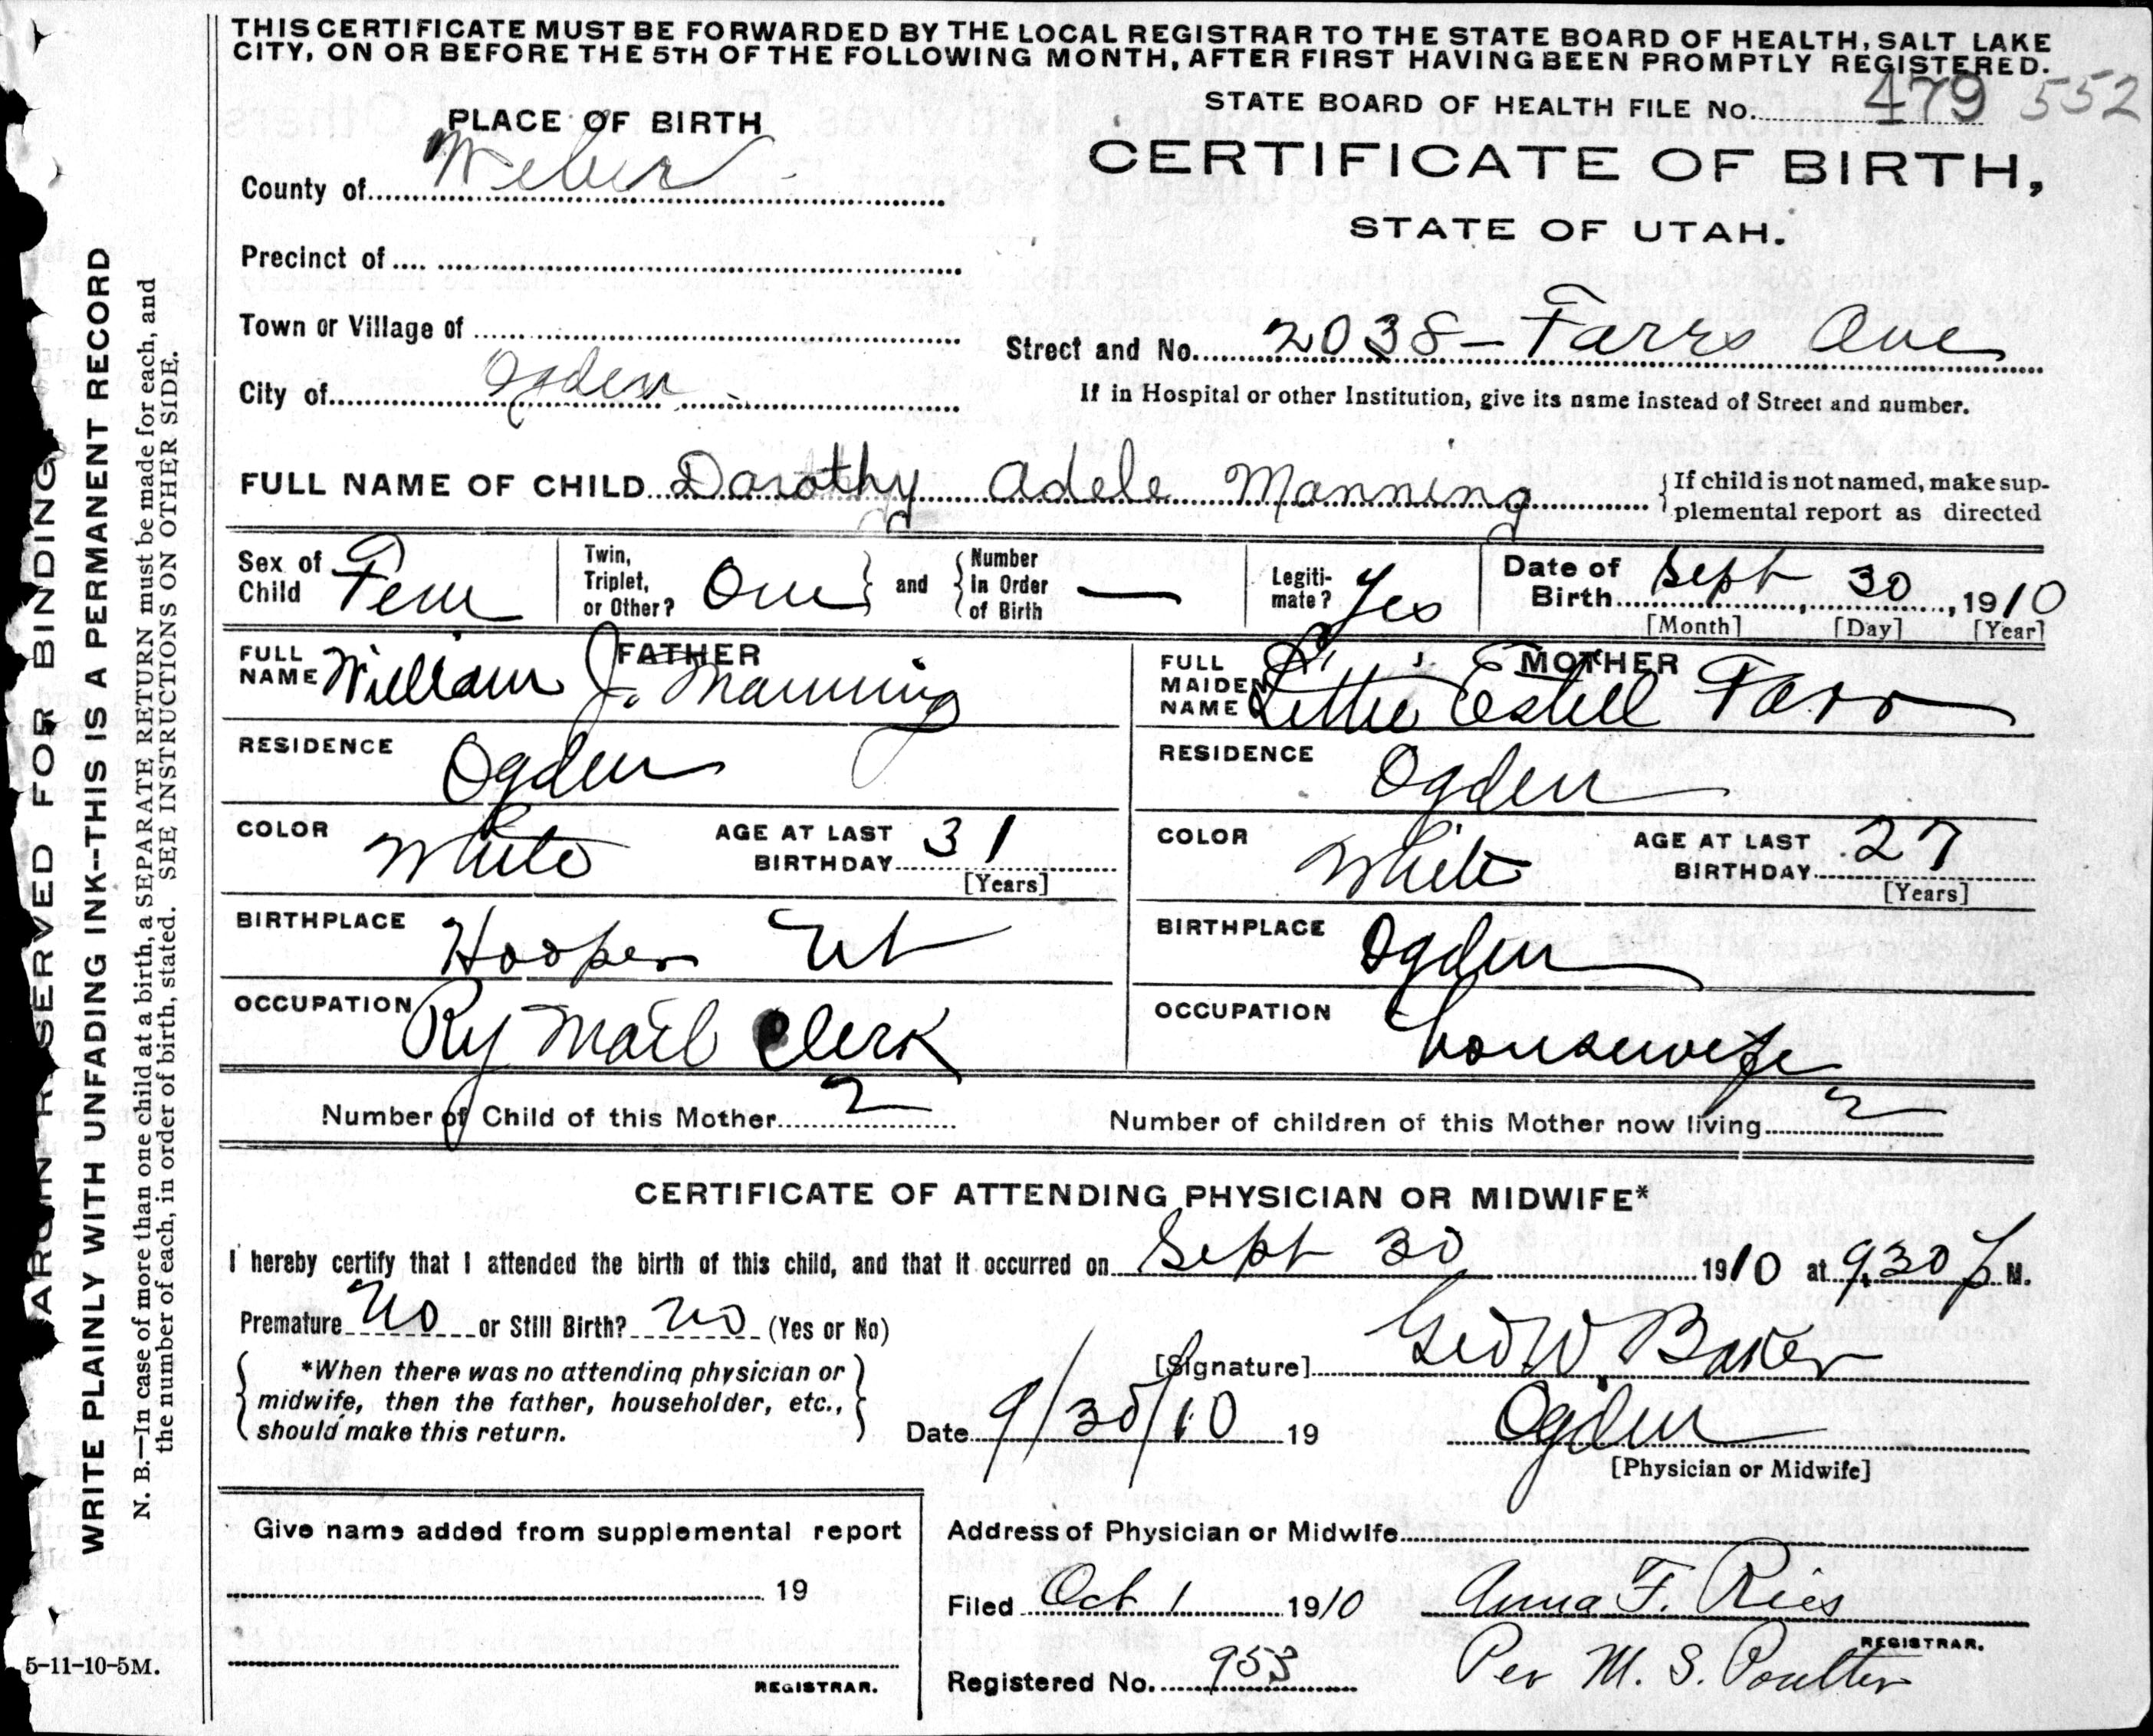 THIS CERTIFICATE MUST BE FORWARDED BY THE LOCAL REGISTRAR TO THE STATE BOARD OF HEALTH, SALT LAKE
CITY, ON OR BEFORE THE 5TH OF THE FOLLOWING MONTH, AFTER FIRST HAVING BEEN PROMPTLY REGISTERED.
STATE BOARD OF HEALTH FILE No. 479 552
PLACE OF BIRTH
CERTIFICATE OF BIRTH,
STATE OF UTAH.
County of Weber
Precinct of
Town or Village of
Street and No. 2038 - Farrs Ave
City of Ogden
If in Hospital or other Institution, give its name instead of Street and number.
FULL NAME OF CHILD Dorothy Adele Manning
{If child is not named, make sup-
plemental report as directed
Sex of Child Fem
Twin, Triplet, or Other? One } and { Number in Order of Birth —
Legiti-mate? Yes
Date of Birth Sept 30, 1910
[Month] [Day] [Year]
FATHER
FULL NAME William J. Manning
MOTHER
FULL MAIDEN NAME Lettie Estell Farr
RESIDENCE Ogden
RESIDENCE Ogden
COLOR White AGE AT LAST BIRTHDAY 31 [Years]
COLOR White AGE AT LAST BIRTHDAY 27 [Years]
BIRTHPLACE Hooper Ut
BIRTHPLACE Ogden
OCCUPATION Ry Mail Clerk
OCCUPATION housewife
Number of Child of this Mother 2
Number of children of this Mother now living 2
CERTIFICATE OF ATTENDING PHYSICIAN OR MIDWIFE*
I hereby certify that I attended the birth of this child, and that it occurred on Sept 30 1910 at 9,30 P M.
Premature No or Still Birth? No (Yes or No)
*When there was no attending physician or
midwife, then the father, householder, etc.,
should make this return.
[Signature] Geo W Baker
Date 9/30/10 19
Ogden
[Physician or Midwife]
Give name added from supplemental report
19
REGISTRAR.
Address of Physician or Midwife
Filed Oct 1 1910 Anna F. Ries
REGISTRAR.
Registered No. 953 Per M. S. Poulter
MARGIN RESERVED FOR BINDING
WRITE PLAINLY WITH UNFADING INK--THIS IS A PERMANENT RECORD
N. B.—In case of more than one child at a birth, a SEPARATE RETURN must be made for each, and
the number of each, in order of birth, stated. SEE INSTRUCTIONS ON OTHER SIDE.
5-11-10-5M.